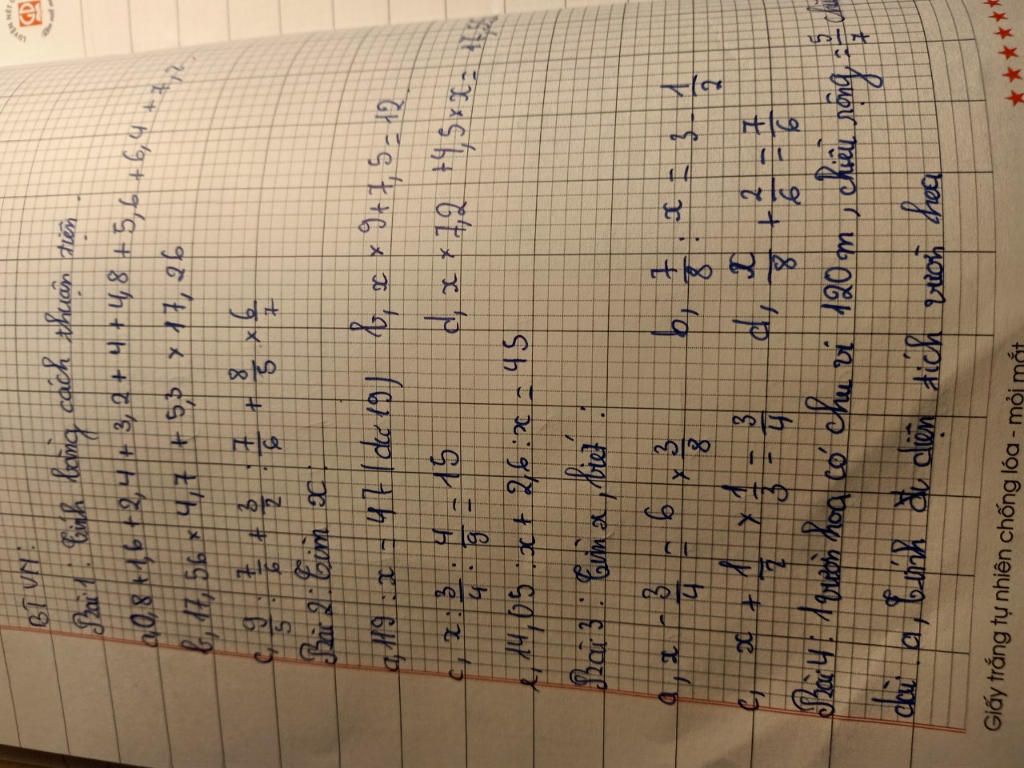 BTVN:
Bài 1: Tính bằng cách thuận tiện.
a, 0,8 + 1,6 + 2,4 + 3,2 + 4 + 4,8 + 5,6 + 6,4 + 7,2
b, 17,56 × 4,7 + 5,3 × 17,26
c, 9/5 : 7/6 + 3/2 : 7/6 + 8/5 × 6/7
Bài 2: Tìm x
a, 119 : x = 47 (dư 19) b, x × 9 + 7,5 = 12
c, x : 3/4 : 4/9 = 15 d, x × 7,2 + 4,5 × x =
e, 14,05 : x + 2,6 : x = 45
Bài 3: Tìm x, biết:
a, x - 3/4 = 6 × 3/8 b, 7/8 : x = 3 - 1/2
c, x + 1/2 × 1/3 = 3/4 d, x/8 + 2/6 = 7/6
Bài 4: 1 vườn hoa có chu vi 120m, chiều rộng = 5/7
dài. a, Tính diện tích vườn hoa
Giấy trắng tự nhiên chống lóa - mỏi mắt